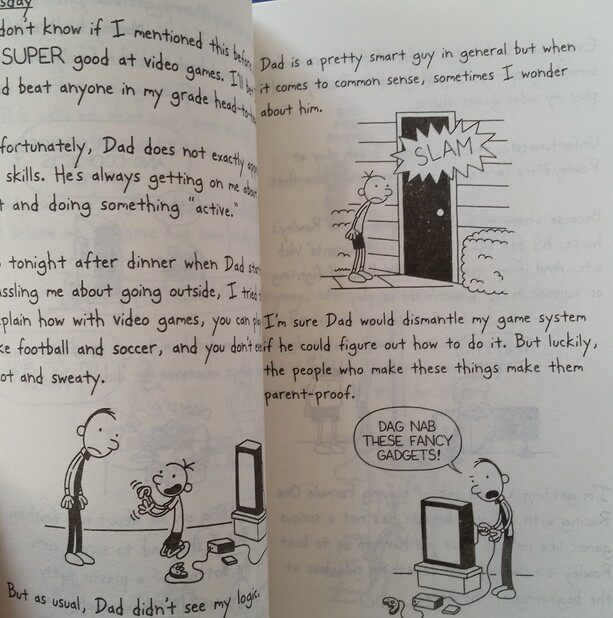 sday
don't know if I mentioned this before,
SUPER good at video games. I'll
d beat anyone in my grade head-to-
fortunately, Dad does not exactly
skills. He's always getting on me about
t and doing something "active."
tonight after dinner when Dad
ssling me about going outside, I tried
xplain how with video games, you can
ke football and soccer, and you don't
ot and sweaty.
But as usual, Dad didn't see my logic.
Dad is a pretty smart guy in general but when
it comes to common sense, sometimes I wonder
about him.
SLAM
I'm sure Dad would dismantle my game system
if he could figure out how to do it. But luckily,
the people who make these things make them
parent-proof.
DAG NAB
THESE FANCY
GADGETS!